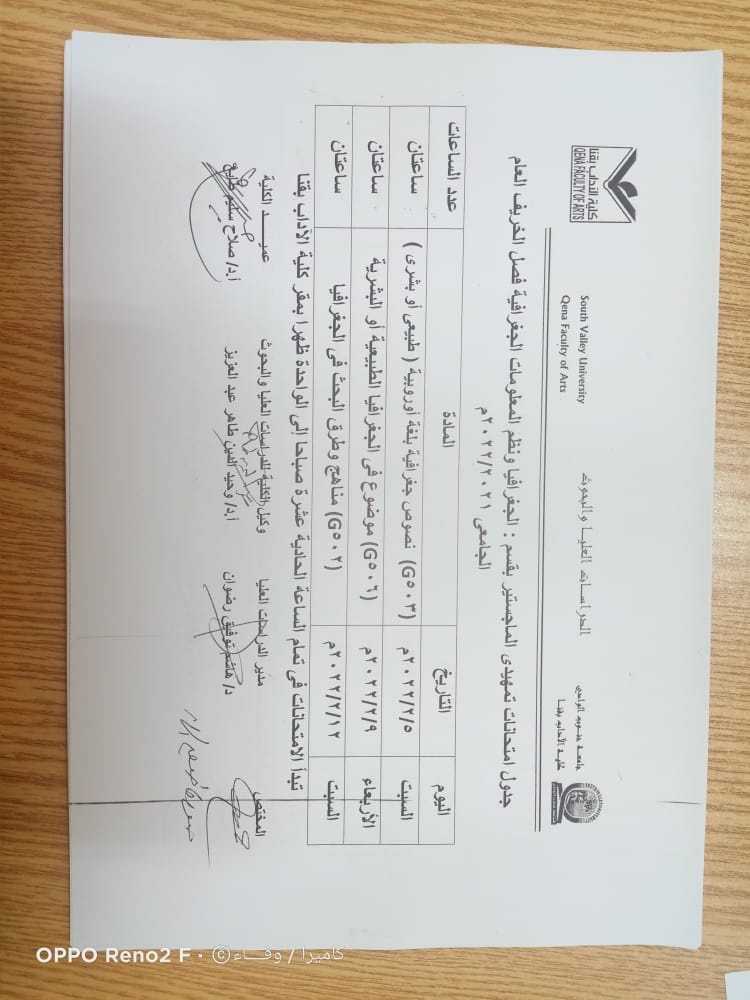 جامعة جنوب الوادى
كلية الآداب بقنا
الدراسات العليا والبحوث
South Valley University
Qena Faculty of Arts
كلية الآداب بقنا
QENA FACULTY OF ARTS
جدول امتحانات تمهيدى الماجستير بقسم : الجغرافيا ونظم المعلومات الجغرافية فصل الخريف العام
الجامعى ٢٠٢٢/٢٠٢١م
اليوم التاريخ المادة عدد الساعات
السبت ٢٠٢٢/٢/٥م (G٥٠٣) نصوص جغرافية بلغة أوروبية ( طبيعى أو بشرى ) ساعتان
الأربعاء ٢٠٢٢/٢/٩م (G٥٠٦) موضوع فى الجغرافيا الطبيعية أو البشرية ساعتان
السبت ٢٠٢٢/٢/١٢م (G٥٠٢) مناهج وطرق البحث فى الجغرافيا ساعتان
تبدأ الامتحانات فى تمام الساعة الحادية عشرة صباحا إلى الواحدة ظهرا بمقر كلية الآداب بقنا
المختص مدير الدراسات العليا وكيل الكلية للدراسات العليا والبحوث عميد الكلية
د/ هاشم توفيق رضوان أ.د/ وحيد الدين طاهر عبد العزيز أ.د/ صلاح سليم طايع
OPPO Reno2 F · ©كاميرا / وفاء